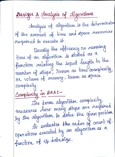 Design & Analysis of Algorithms
Analysis of algorithm is the determination
of the amount of time and space resources
required to execute it.
Usually the efficiency or running
time of an algorithm is stated as a
function relating the input length to the
number of steps, known as time complexity,
or volume of memory, known as space
complexity.
Complexity in DAA:-
The term algorithm complexity
measures how many steps are required
by the algorithm to solve the given problem.
It evaluates the order of count of
operations executed by an algorithm as a
function of i/p data size.